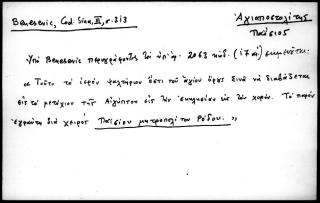 Benesevic, Cod. Sin., III, σ. 313
Ἁγιαποστολίτης
Παΐσιος
Ὑπὸ Benesevic περιγράφοντος τὸν ὑπ' ἀρ. 2063 κώδ. (17 αἰ) σημειοῦται:
«Τοῦτο τὸ ἱερὸν ψαλτήριον ἔστι τοῦ ἁγίου ὄρους Σινᾶ νὰ διαβάζεται
εἰς τὸ μετόχιον τῆς Αἰγύπτου εἰς τὴν ἐκκλησίαν εἰς τὸν χορόν. Τὸ παρὸν
ἐγράφη διὰ χειρὸς Παϊσίου μητροπολίτου Ρόδου.»